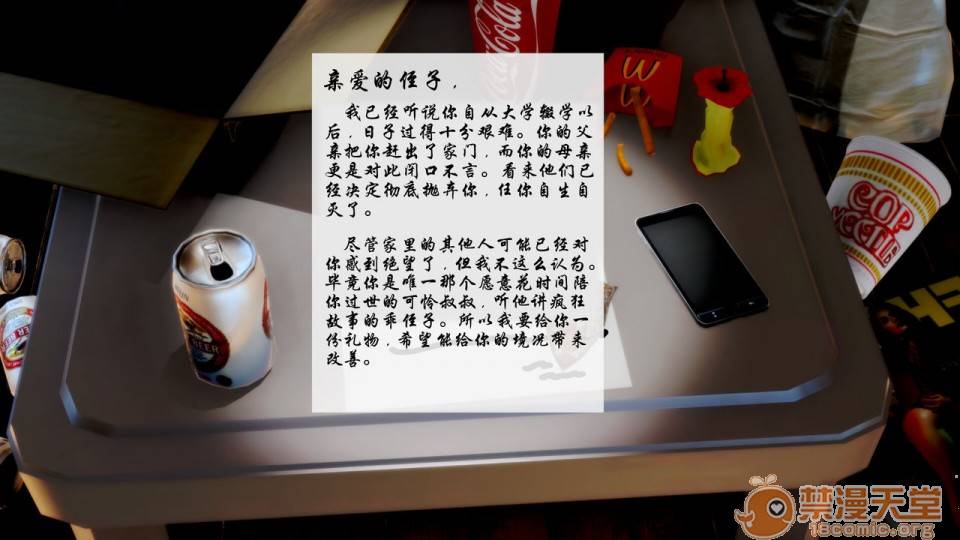 亲爱的侄子，
我已经听说你自从大学辍学以
后，日子过得十分艰难。你的父
亲把你赶出了家门，而你的母亲
更是对此闭口不言。看来他们已
经决定彻底抛弃你，任你自生自
灭了。
尽管家里的其他人可能已经对
你感到绝望了，但我不这么认为。
毕竟你是唯一那个愿意花时间陪
你过世的可怜叔叔，听他讲疯狂
故事的乖侄子。所以我要给你一
份礼物，希望能给你的境况带来
改善。
Coca-Cola
CUP
NOODLE
BEER
禁漫天堂
18comic.org